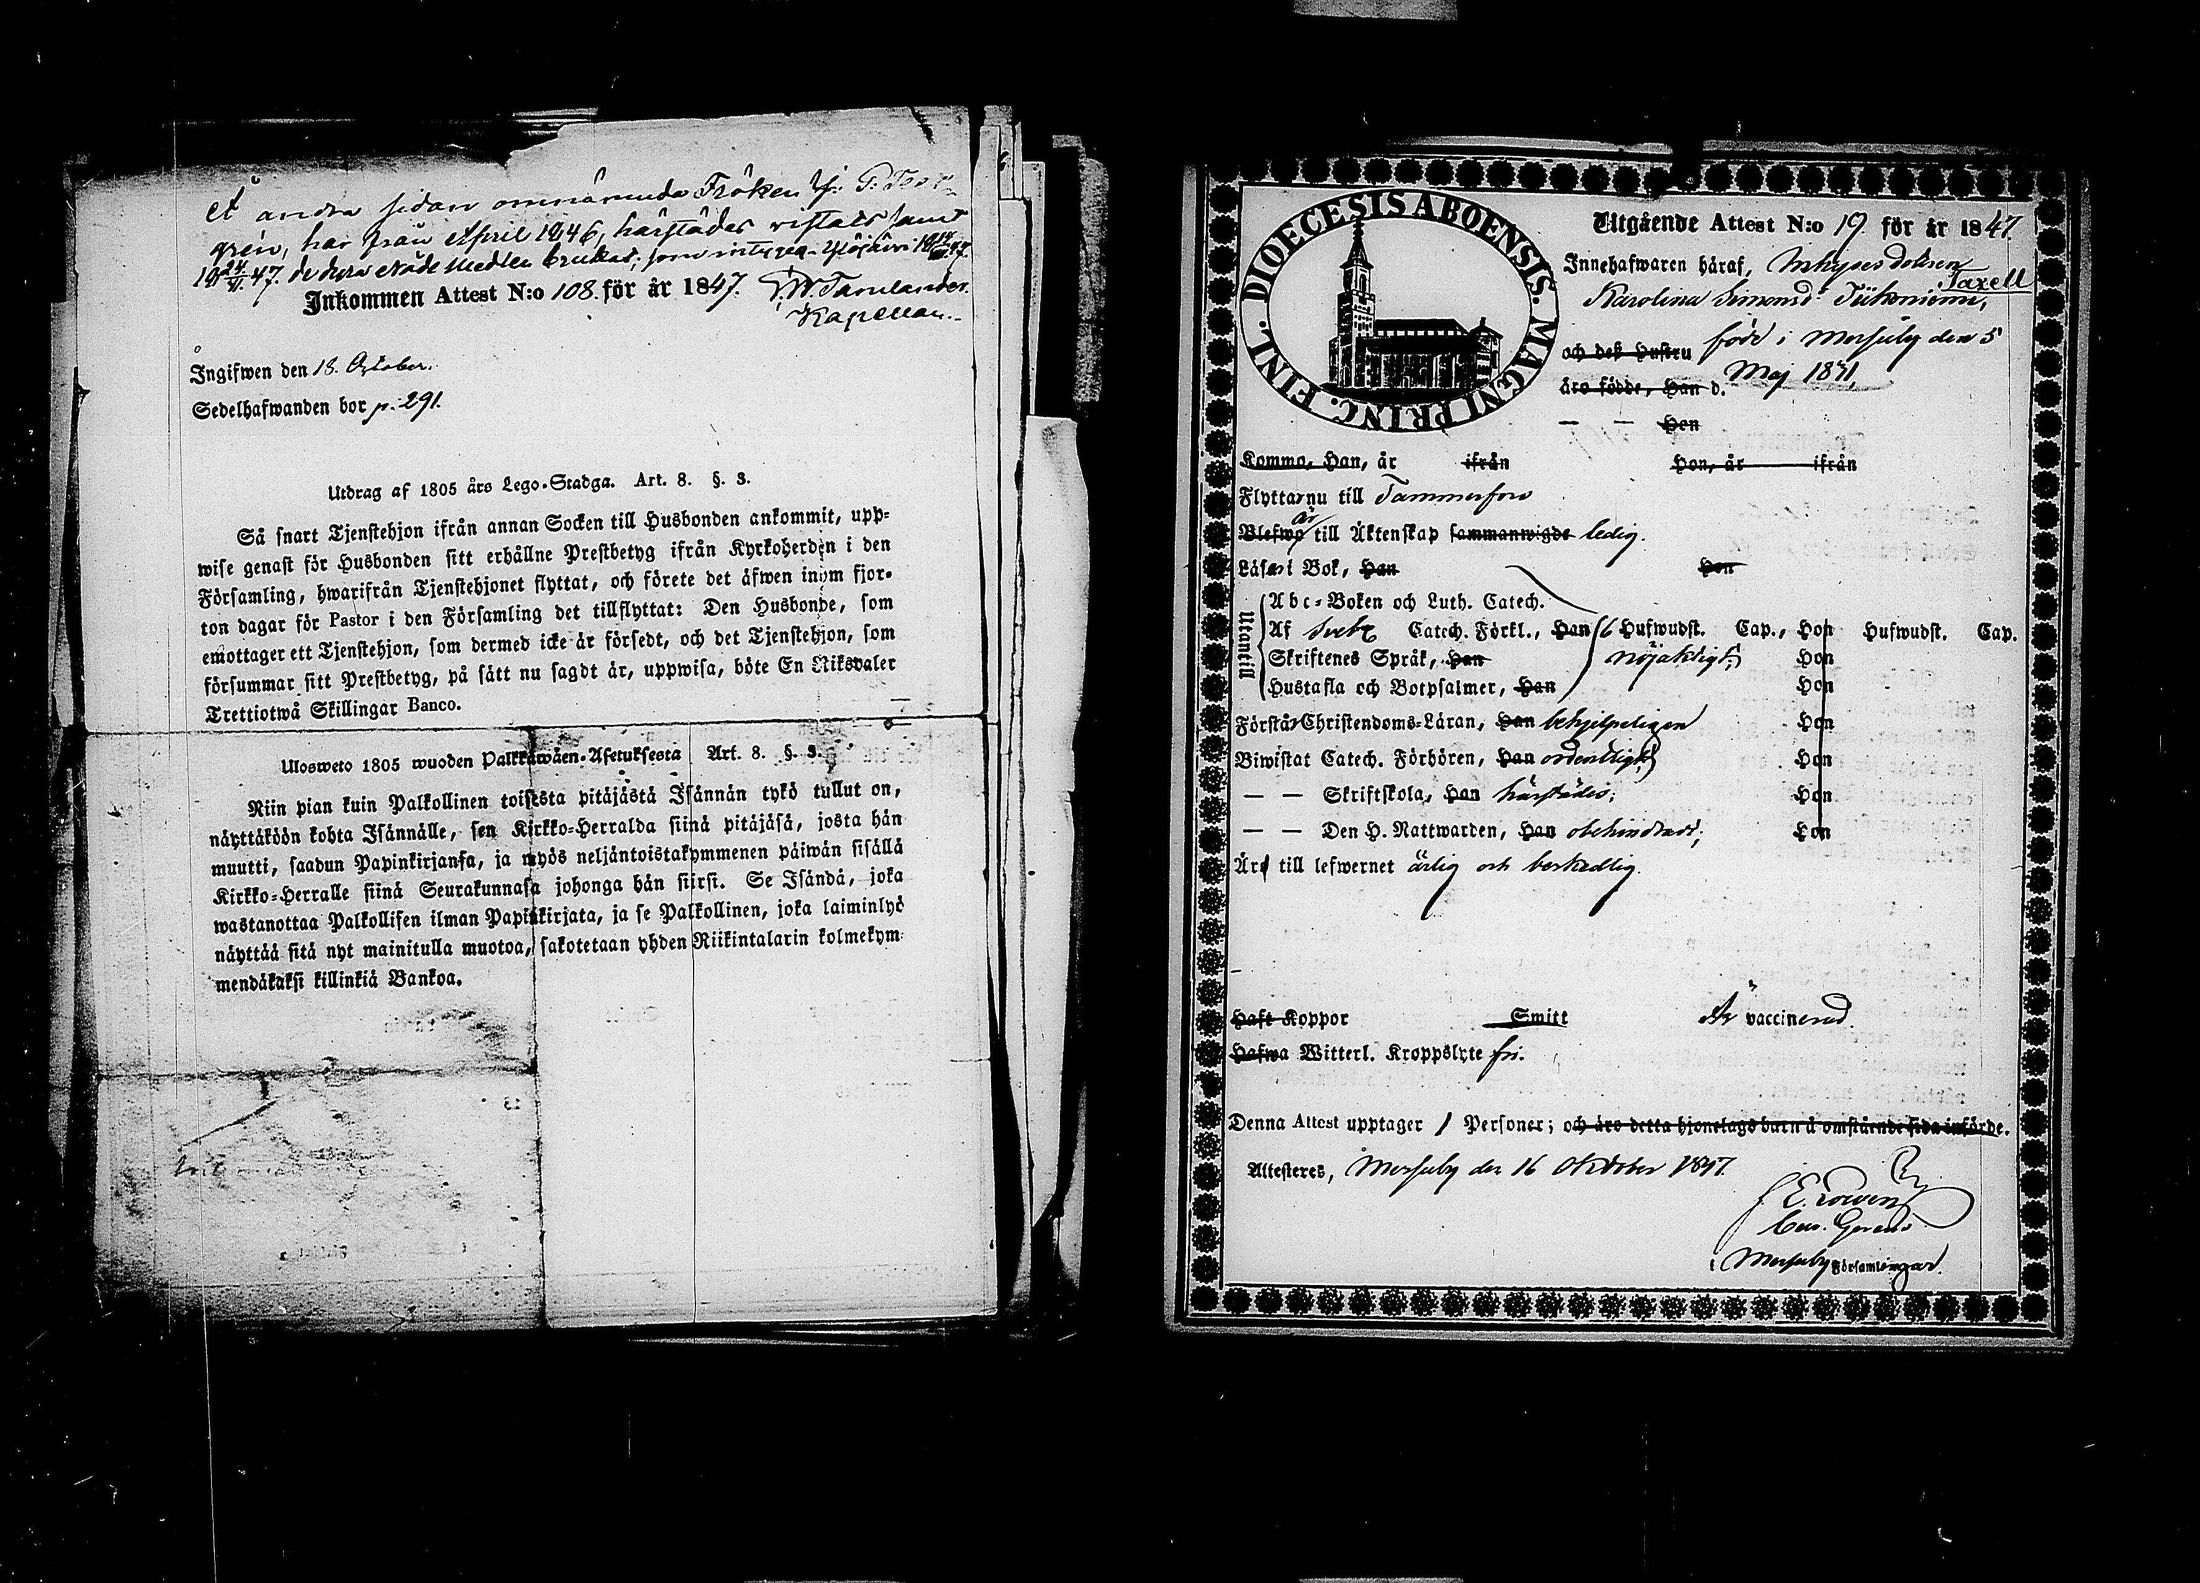 Å andra sidan omnämnda Fröken
grén, har från April 1846, härstädes vistats samt
de dyra Nåde Medlen brukat; som intygar. Ylöjärvi
Inkommen Attest N:o 108. för år 1847.
Kapellan.
Ingifwen den 18. October.
Sedelhafwanden bor p. 291.
Utdrag af 1805 års Lego-Stadga. Art. 8. §. 3.
Så snart Tjenstehjon ifrån annan Socken till Husbonden ankommit, upp-
wise genast för Husbonden sitt erhållne Prestbetyg ifrån Kyrkoherden i den
Församling, hwarifrån Tjenstehjonet flyttat, och förete det äfwen inom fjor-
ton dagar för Pastor i den Församling det tillflyttat: Den Husbonde, som
emottager ett Tjenstehjon, som dermed icke är försedt, och det Tjenstehjon, som
försummar sitt Prestbetyg, på sätt nu sagdt är, uppwisa, böte En Riksdaler
Trettiotwå Skillingar Banco.
Ulosweto 1805 wuoden Palkkawäen-Asetuksesta Art. 8. §. 3.
Niin pian kuin Palkollinen toisesta pitäjästä Isännän tykö tullut on,
näyttäköön kohta Isännälle, sen Kirkko-Herralda siinä pitäjäsä, josta hän
muutti, saadun Papinkirjansa, ja myös neljäntoistakymmenen päiwän sisällä
Kirkko-Herralle siinä Seurakunnasa johonga hän siirsi. Se Isändä, joka
wastanottaa Palkollisen ilman Papinkirjata, ja se Palkollinen, joka laiminlyö
näyttää sitä nyt mainitulla muotoa, sakotetaan yhden Riikintalarin kolmekym-
mendäkaksi killinkiä Bankoa.
DIOECESIS ABOENSIS. MAGNI PRINC. FINL.
Utgående Attest N:o 19 för år 1847.
Innehafwaren häraf, Inhyses dottren
Taxell
Karolina Simonsd:
och deß Hustru född i Messuby den 5
äro födde, Han d. Maj 1831,
— — Hon
Komma, Han, år ifrån Hon, år ifrån
Flyttar nu till Tammerfors
är
Blefwo till Äktenskap sammanwigde ledig.
Läsa i Bok, Han Hon
Utantill
Abc-Boken och Luth. Catech.
Af Svebe Catech. Förkl., Han 6 Hufwudst. Cap., Hon Hufwudst. Cap.
Skriftenes Språk, Han nöjaktigt; Hon
Hustafla och Botpsalmer, Han Hon
Förstår Christendoms-Läran, Han behjelpeligen Hon
Biwistat Catech. Förhören, Han ordentligt; Hon
— — Skriftskola, Han härstädes; Hon
— — Den H. Nattwarden, Han obehindrad; Hon
Äro till lefwernet ärlig och beskedlig.
Haft Koppor Smitt Är vaccinerad.
Hafwa Witterl. Kroppslyte fri.
Denna Attest upptager 1 Personer; och äro detta hjonelags barn å omstående sida införde.
Attesteres, Messuby den 16 Oktober 1847.
i Messuby Församlingar.